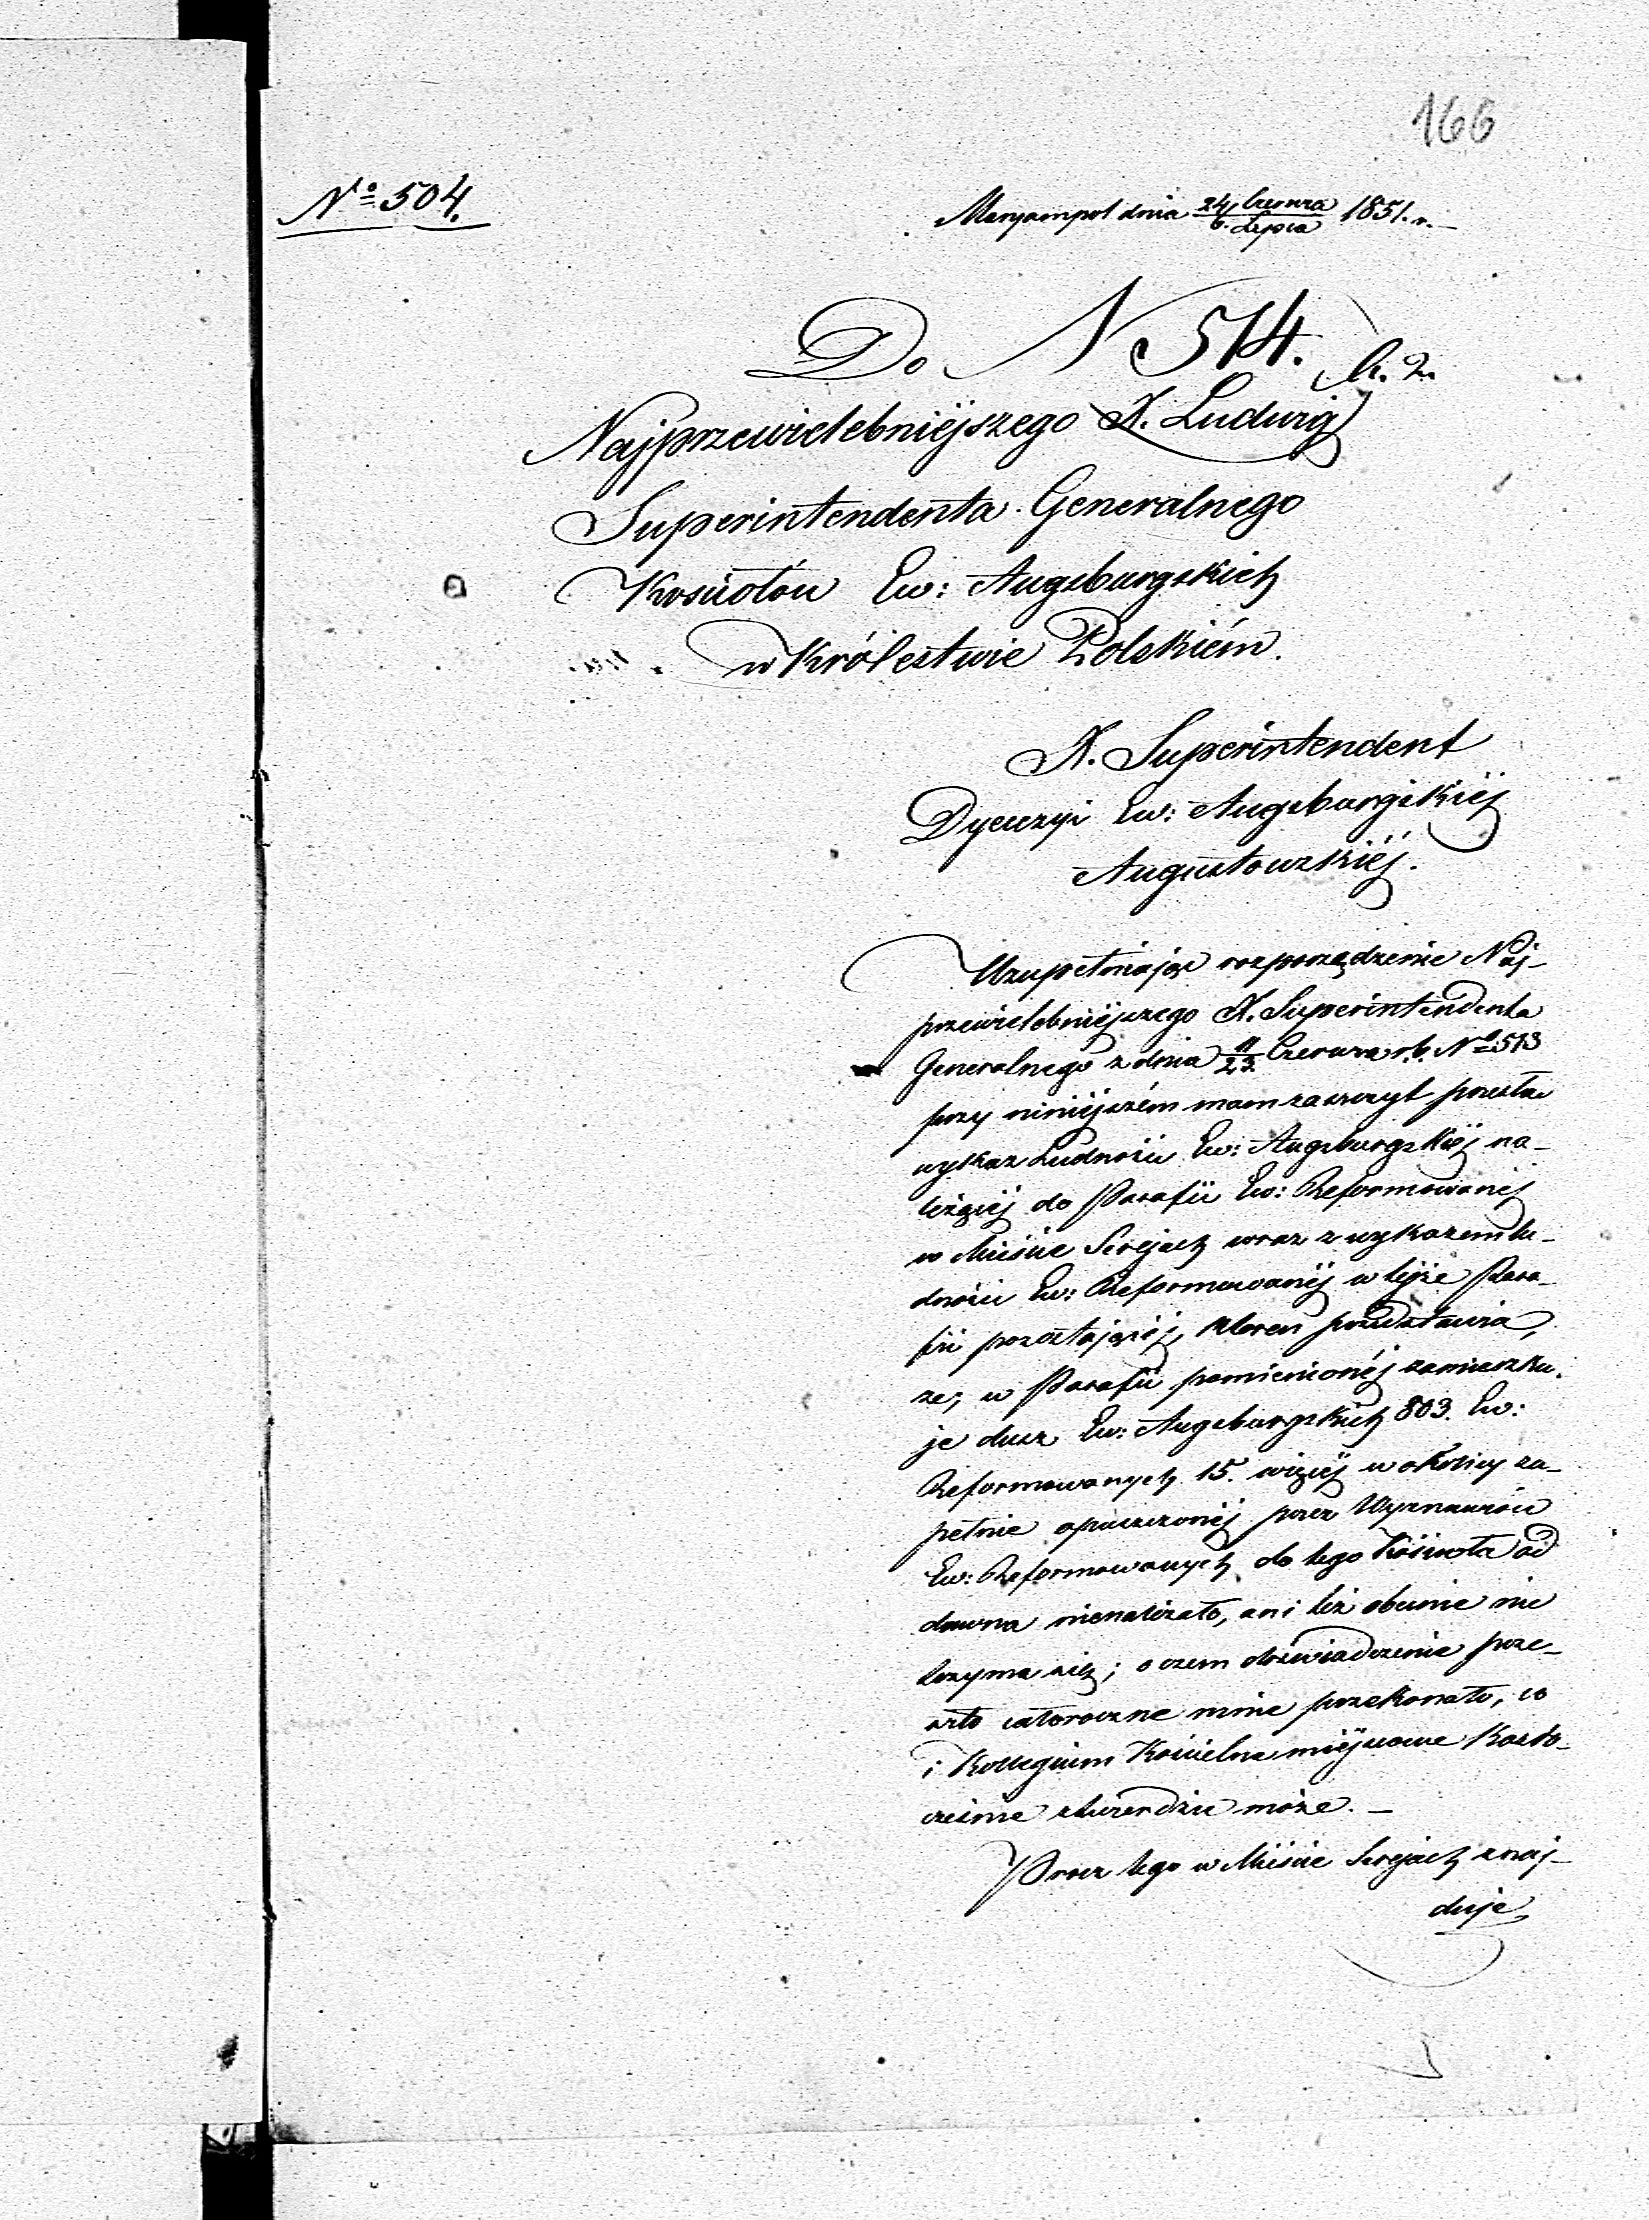 166
Nº 504.
Maryampol dnia 24 Czerwca / 6. Lipca 1851. r.
Do N 514.
Najprzewielebniéjszego X. Ludwig
Superintendenta Generalnego
Kościołów Ew: Augsburgskich
w Królestwie Polskiém.
X. Superintendent
Dyecezyi Ew: Augsburgskiéj
Augustowskiéj.
Uzupełniając rozporządzenie Naj-
przewielebniéjszego X. Superintendenta
Generalnego z dnia 11/23 Czerwca r.b. Nº 513
przy niniéjszém mam zaszczyt
wykaz Ludności Ew: Augsburgskiéj na-
leżącéj do Parafii Ew: Reformowanéj
w Mieście Serejach wraz z wykazem lu-
dności Ew: Reformowanéj w tejże Para-
fii pozostającéj, przedstawia,
że, w Parafii pomienionéj zamieszku-
je dusz Ew: Augsburgskich 803. Ew:
Reformowanych 15. więcéj w okolicy zu-
pełnie opuszczonéj przez Wyznawców
Ew: Reformowanych do tego Kościoła od
dawna nienależało, ani też obecnie nie
trzyma się; o czem doświadczenie prze-
szło całoroczne mnie przekonało, co
i Kollegium Kościelne miéjscowe
stwierdzić może. –
Prócz tego w Mieście Serejach znaj-
duje